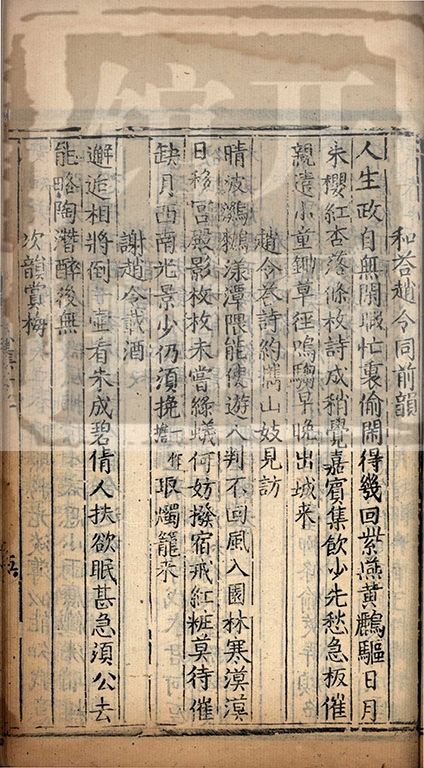 和荅趙令同前韻
人生政自無閑暇忙裏偷閑得幾回紫燕黃鸝驅日月
朱櫻紅杏落條枚詩成稍覺嘉賓集飲少先愁急板催
親遣小童鋤草徑鳴騶早晚出城來
趙令荅詩約携山妓見訪
晴波鸂鶒漾潭隈能使遊人判不回風入園林寒漠漠
日移宮殿影枚枚未嘗綠蟻何妨撥宿戒紅粧莫待催
缺月西南光景少仍須挽一作擔取燭籠來
謝趙令載酒
邂逅相將倒一壺看朱成碧倩人扶欲眠甚急須公去
能略陶潛醉後無
次韻賞梅